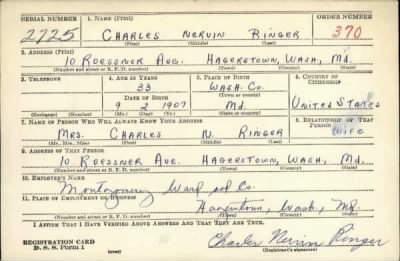 SERIAL NUMBER 1. NAME (Print) ORDER NUMBER
2725 CHARLES NERVIN RINGER 370
(First) (Middle) (Last)
2. ADDRESS (Print)
10 ROESSNER AVE. HAGERSTOWN, WASH, Md.
(Number and street or R. F. D. number) (Town) (County) (State)
3. TELEPHONE 4. AGE IN YEARS 5. PLACE OF BIRTH 6. COUNTRY OF CITIZENSHIP
33 WASH. CO.
DATE OF BIRTH (Town or county)
9 2 1907 Md United States
(Exchange) (Number) (Mo.) (Day) (Yr.) (State or country)
7. NAME OF PERSON WHO WILL ALWAYS KNOW YOUR ADDRESS 8. RELATIONSHIP OF THAT PERSON
MRS. CHARLES N. RINGER WIFE
(Mr., Mrs., Miss) (First) (Middle) (Last)
9. ADDRESS OF THAT PERSON
10 ROESSNER AVE. HAGERSTOWN, WASH, Md.
(Number and street or R. F. D. number) (Town) (County) (State)
10. EMPLOYER'S NAME
Montgomery Ward and Co.
11. PLACE OF EMPLOYMENT OR BUSINESS
Hagerstown, Wash, Md.
(Number and street or R. F. D. number) (Town) (County) (State)
I AFFIRM THAT I HAVE VERIFIED ABOVE ANSWERS AND THAT THEY ARE TRUE.
REGISTRATION CARD
D. S. S. Form 1 (over) Charles Nervin Ringer
(Registrant's signature)